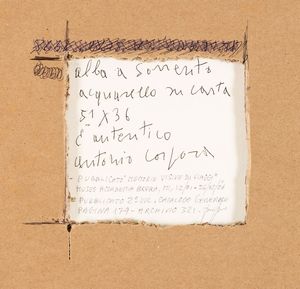 alba a Sorrento
acquarello su carta
51 X 36
È autentico
antonio corpora
- PUBBLICATO "MEMORIA VISIVE DI VIAGGI"
MUSEO ACCADEMIA BRERA, MI,
- PUBBLICATO 2° VOL. CATALOGO GENERALE
PAGINA 179 - ARCHIVIO 321